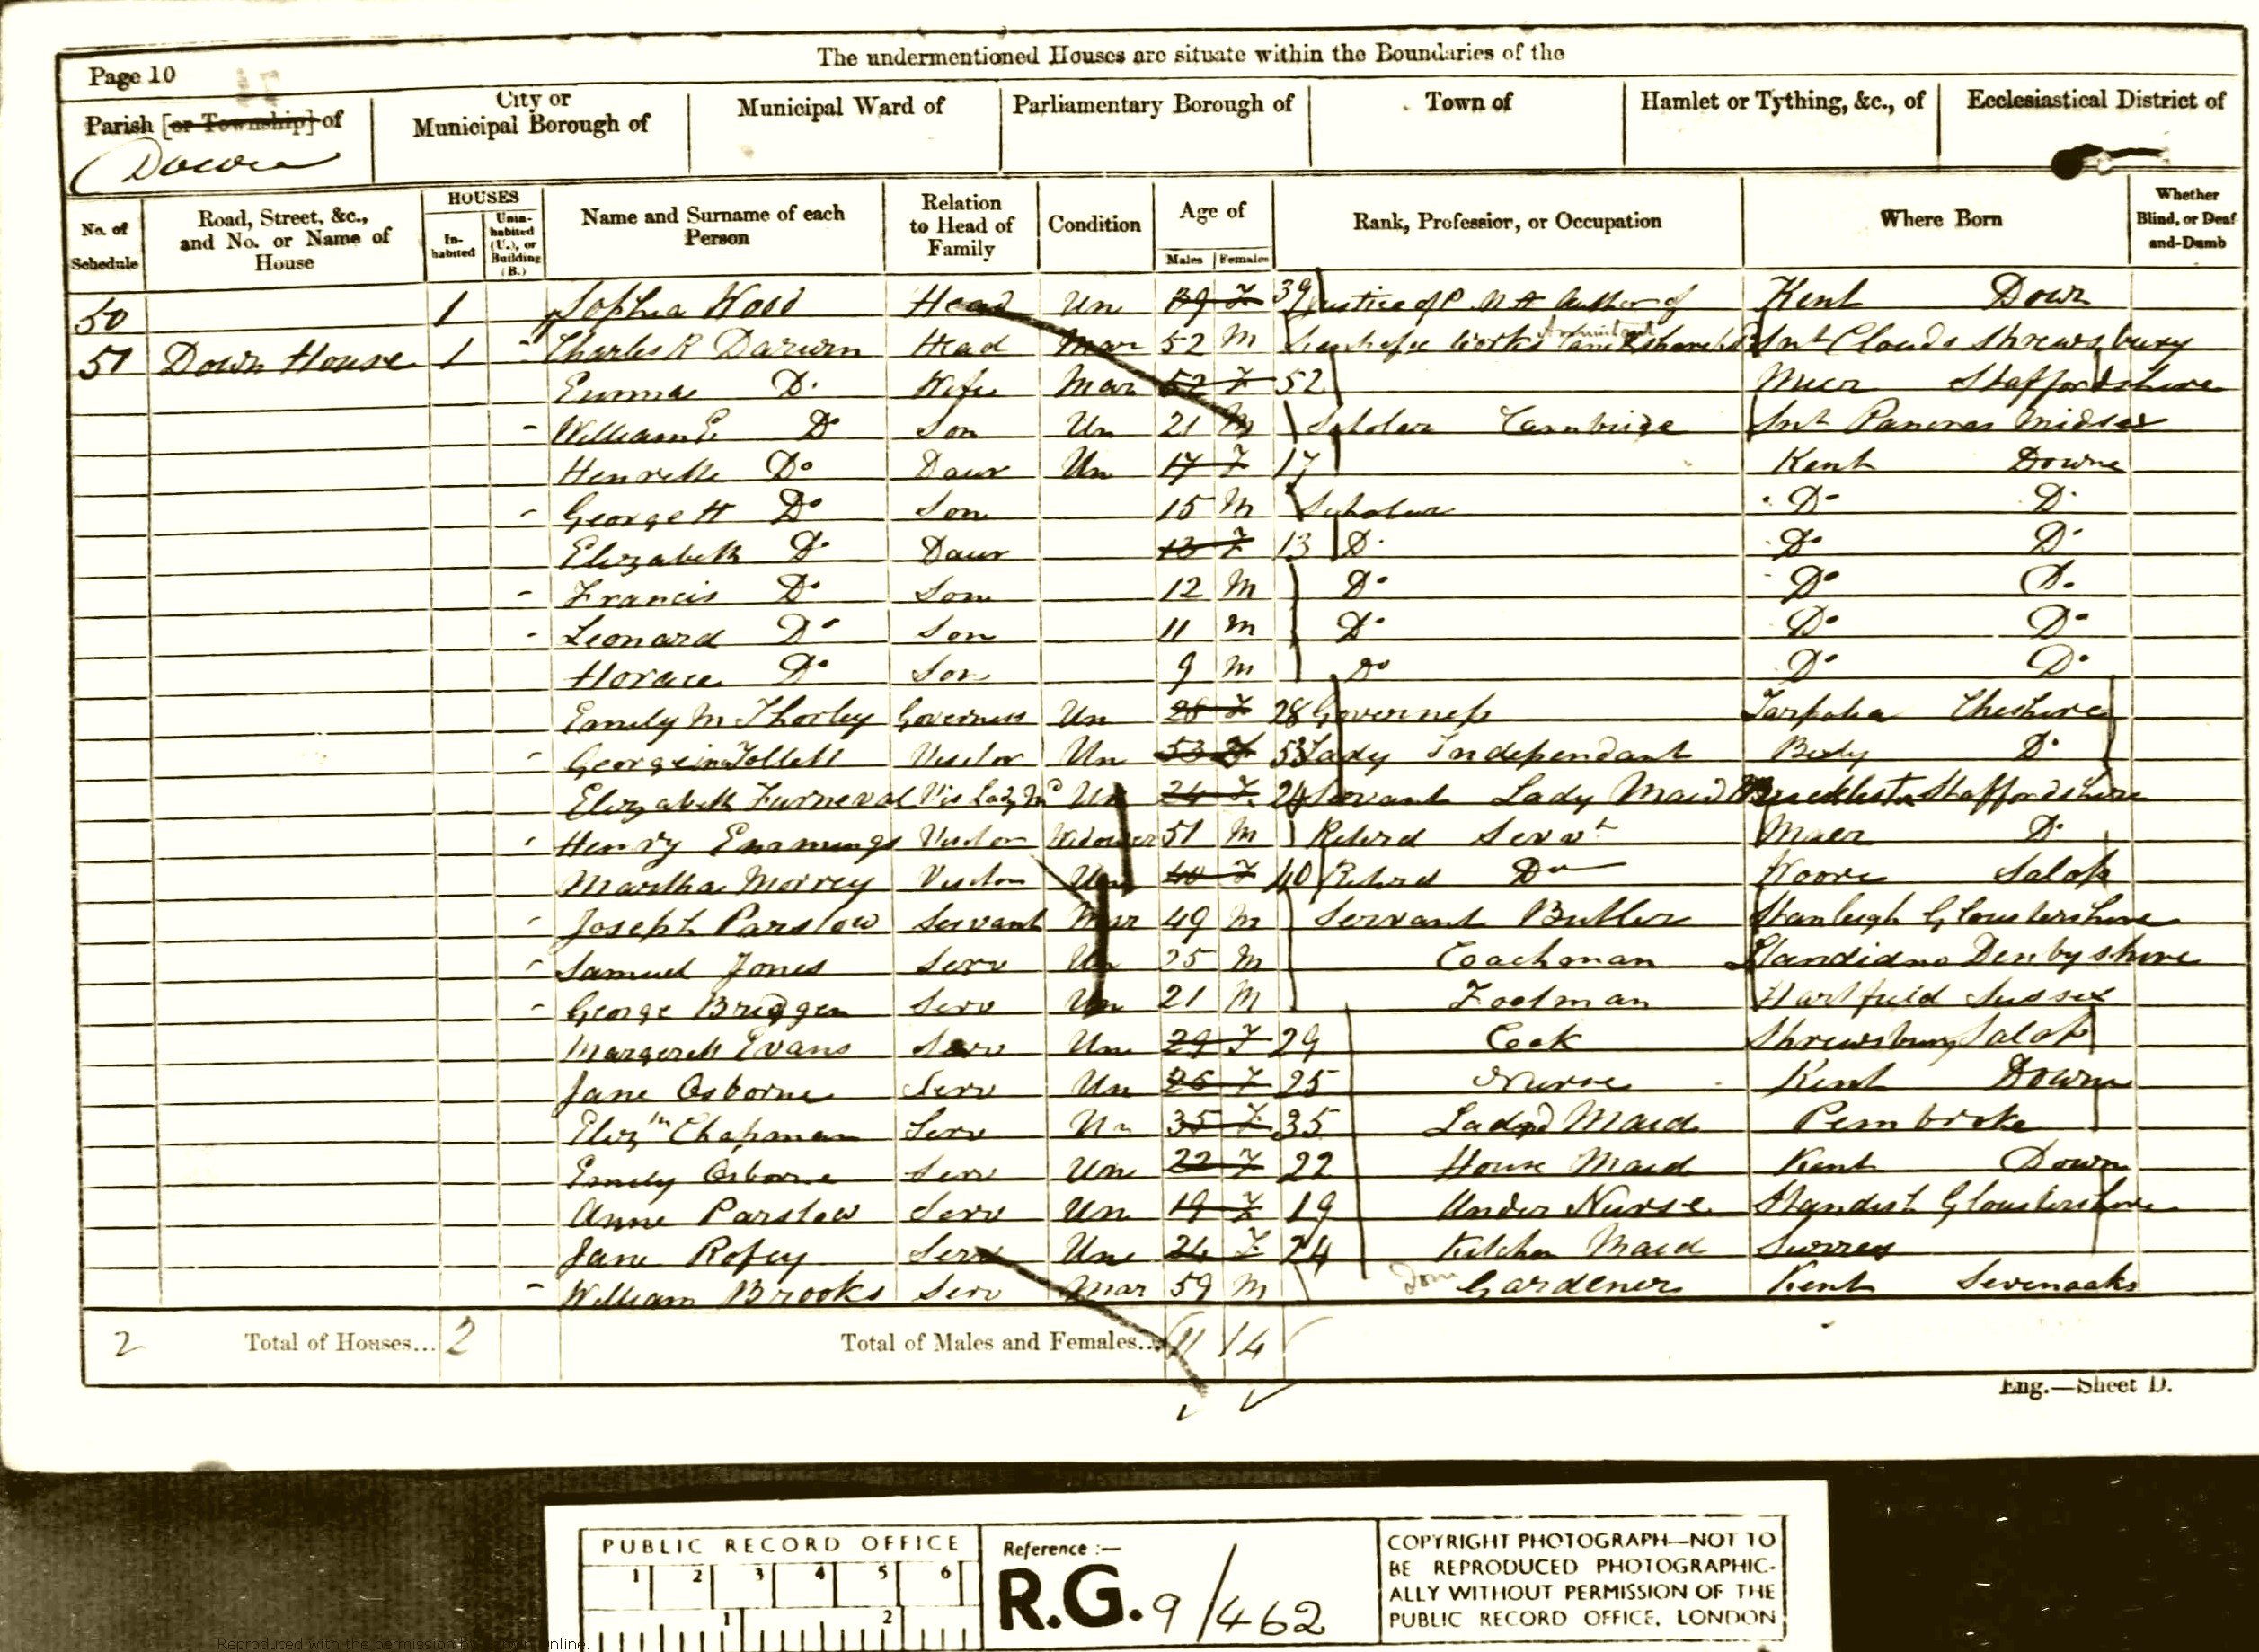 The undermentioned Houses are situate within the Boundaries of the
Page 10
Parish [or Township] of
City or Municipal Borough of
Municipal Ward of
Parliamentary Borough of
Town of
Hamlet or Tything, &c., of
Ecclesiastical District of
Down
No. of Schedule
Road, Street, &c., and No. or Name of House
HOUSES
In-habited
Unin-habited (U.), or Building (B.)
Name and Surname of each Person
Relation to Head of Family
Condition
Age of
Males Females
Rank, Profession, or Occupation
Where Born
Whether Blind, or Deaf-and-Dumb
50 1 Sophia Wood Head Un 39 F 39 Justice of P. M A Author of Kent Down
51 Down House 1 Charles R Darwin Head Mar 52 M Scientific Works Shrewsbury
Emma Do Wife Mar 52 F 52 Maer Staffordshire
William E. Do Son Un 21 M Scholar Cambridge Snt Pancras Midsex
Henrietta Do Daur Un 17 F 17 Kent Downe
George H Do Son 15 M Scholar Do Do
Elizabeth Do Daur 13 F 13 Do Do Do
Francis Do Son 12 M Do Do Do
Leonard Do Son 11 M Do Do Do
Horace Do Son 9 M Do Do Do
Emily M Thorley Governess Un 28 F 28 Governess Cheshire
Georgina Tollett Visitor Un 53 F 53 Lady Independant Do
Elizabeth Furneval Vis Lady Md Un 24 F 24 Servant Lady Maid Staffordshire
Henry Emmings Visitor Widower 51 M Retird Servt Maer Do
Martha Morrey Visitor Un 40 F 40 Retird Do Woore Salop
Joseph Parslow Servant Mar 49 M Servant Butler Gloustershire
Samuel Jones Serv Un 25 M Coachman Denbyshire
George Briggen Serv Un 21 M Footman Hartfield Sussex
Margerett Evans Serv Un 29 F 29 Cook Shrewsbury Salop
Jane Osborne Serv Un 25 F 25 Nurse Kent Down
Elizth Chapman Serv Un 35 F 35 Maid Pembroke
Emily Osborne Serv Un 22 F 22 House Maid Kent Down
Anne Parslow Serv Un 19 F 19 Under Nurse Standish Gloustershire
Jane Rofey Serv Un 24 F 24 Kitchen Maid Surrey
William Brooks Serv Mar 59 M Dom Gardener Kent Sevenoaks
2 Total of Houses... 2 Total of Males and Females... 11 14
Eng.—Sheet D.
PUBLIC RECORD OFFICE
1 2 3 4 5 6
1 2
Reference :—
R.G. 9/462
COPYRIGHT PHOTOGRAPH—NOT TO
BE REPRODUCED PHOTOGRAPHIC-
ALLY WITHOUT PERMISSION OF THE
PUBLIC RECORD OFFICE, LONDON
Reproduced with the permission by